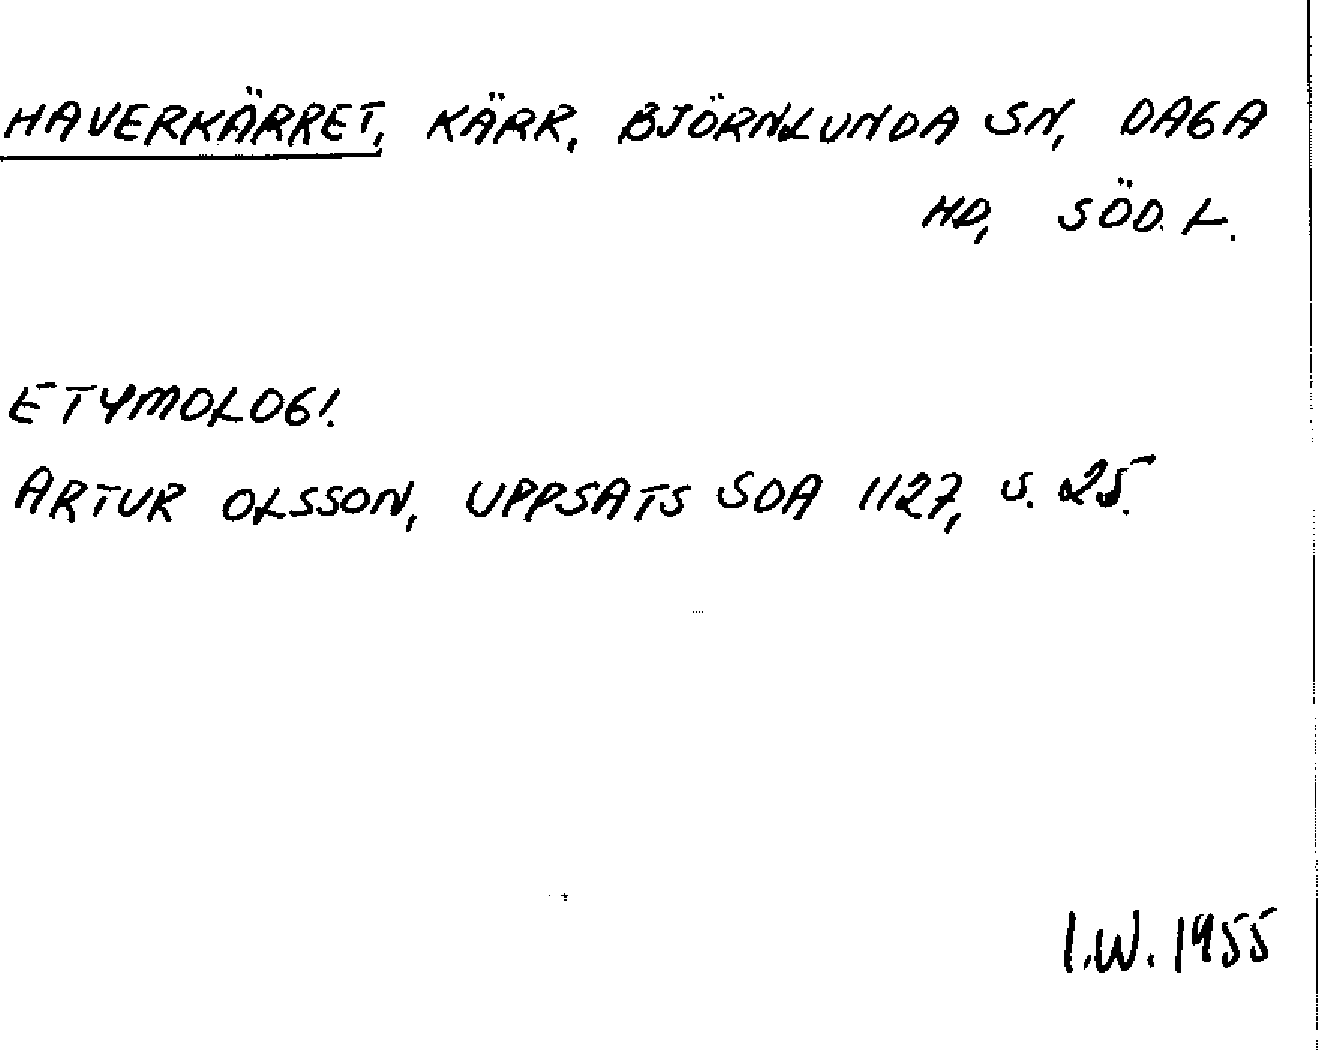 HAVERKÄRRET, KÄRR, BJÖRNLUNDA SN, DAGA
HD, SÖD. L.
ETYMOLOGI.
ARTUR OLSSON, UPPSATS SOA 1127, s. 25.
I.W. 1955